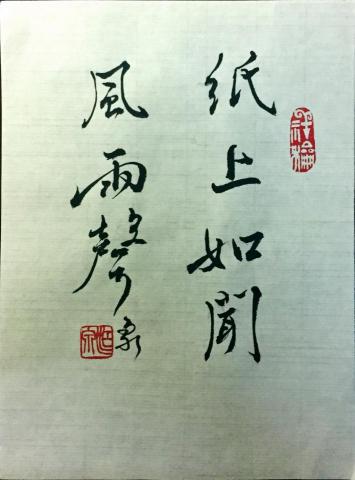 紙上如聞
風雨聲